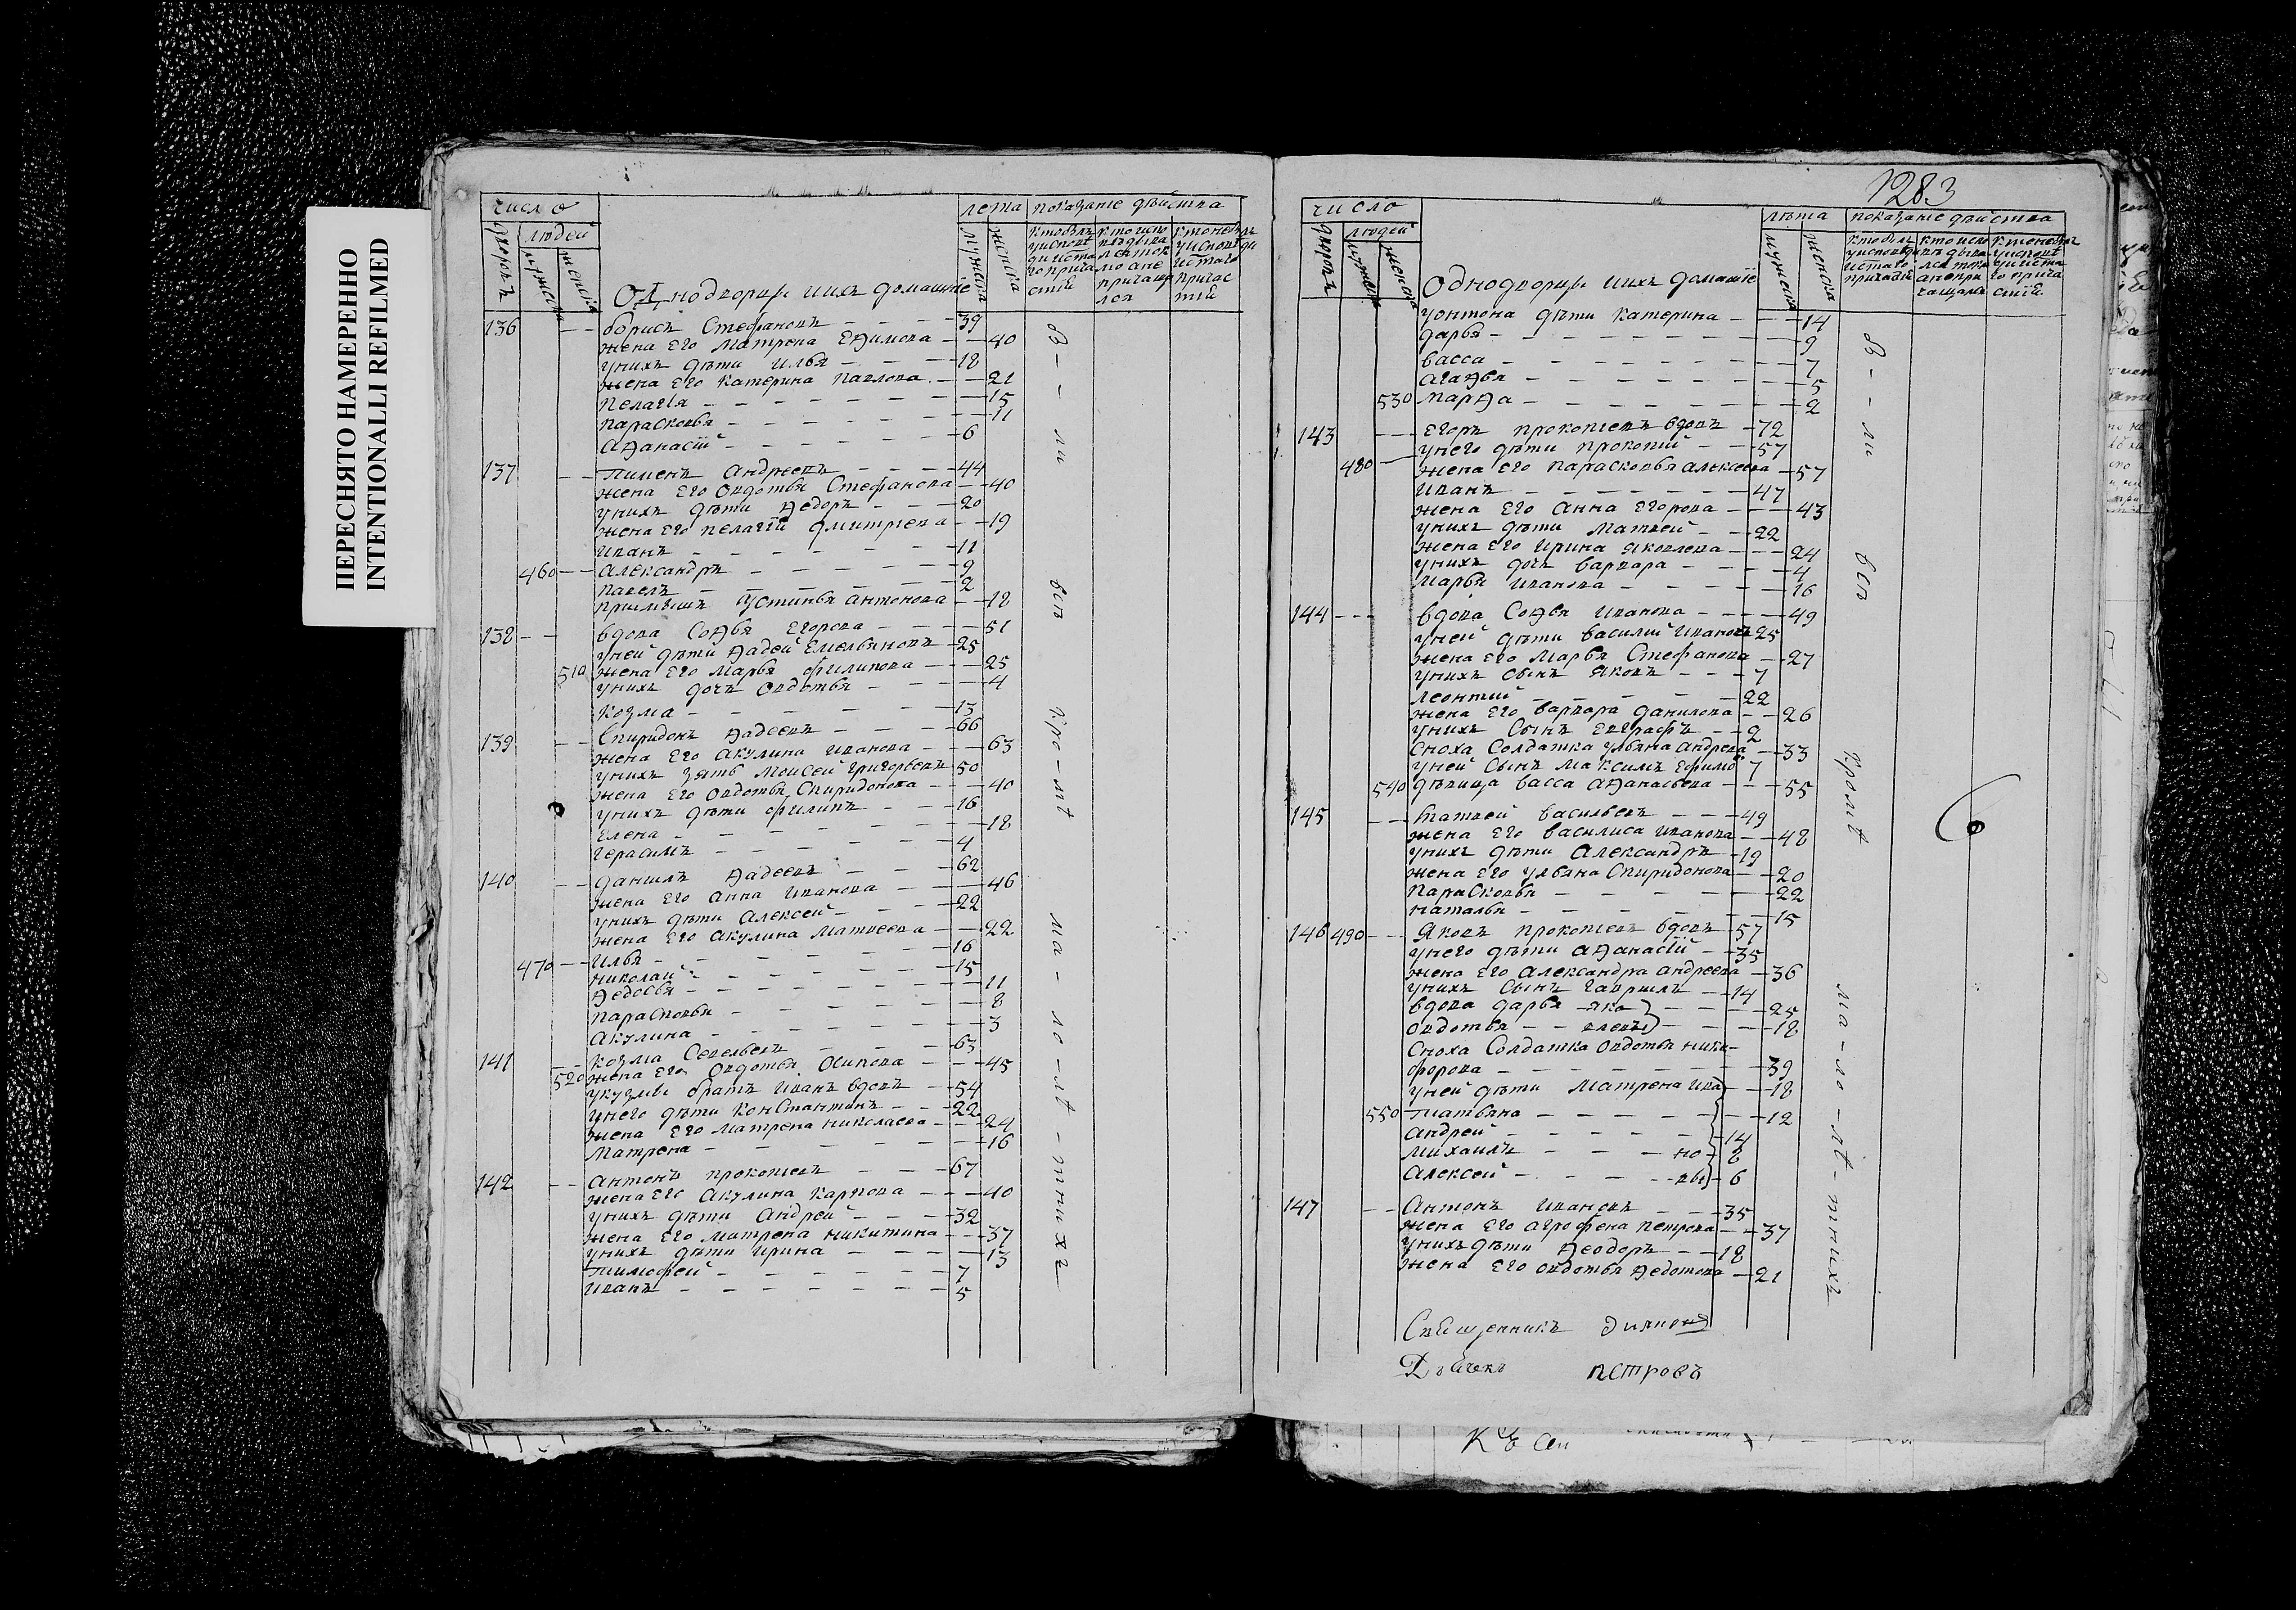 ПЕРЕСНЯТО НАМЕРЕННО
INTENTIONALLI REFILMED
число
лета показанїе дѣиства
дворовъ
людей
мужеска
женска
мужеска
женска
Однодворцы ихъ домашнїе
136 -- борисъ Стефановъ - - - 39
жена Его Матрена Ефимова - - 40
унихъ дѣти Илья - - - 18
жена Его Катерина Павлова - - 21
Пелагїя - - - 15
Парасковья - - - 11
Аѳанасїй - - - 6
137 -- Пименъ Андреевъ - - - 44
жена Его Овдотья Стефанова - - 40
унихъ дѣти Ѳедоръ - - - 20
жена Его Пелагїя Дмитриева - - 19
Иванъ - - - 11
460 -- Александръ - - - 9
Павелъ - - - 2
Приемышъ Устинья Антонова - - 18
138 -- вдова Софья Егорова - - - 51
уней дѣти Ѳадей Емельяновъ - 25
510 жена Его Марья Филипова - - 25
унихъ дочь Овдотья - - - 4
Козма - - - 13
139 -- Спиридонъ Ѳадеевъ - - - 66
жена Его Акулина Иванова - - 63
унихъ зять Моисей Григорьевъ 50
жена Его Овдотья Спиридонова - - 40
унихъ дѣти Филипъ - - - 16
Елена - - - 18
Герасимъ - - - 4
140 -- Данилъ Ѳадеевъ - - - 62
жена Его Анна Иванова - - 46
унихъ дѣти Алексей - - - 22
жена Его Акулина Матвеева - - 22
470 -- Илья - - - 16
Николай - - - 15
Ѳедосья - - - 11
Парасковья - - - 8
Акулина - - - 3
141 -- Козма Севельевъ - - - 63
520 жена Его Овдотья Осипова - - 45
укузмы братъ Иванъ вдовъ - 54
унего дѣти Константинъ - - 22
жена Его Матрена Николаева - - 24
Матрена - - - 16
142 -- Антонъ Прокопиевъ - - - 67
жена Его Акулина Карпова - - 40
унихъ дѣти Андрей - - - 32
жена Его Матрена Никитина - - 37
унихъ дѣти Ирина - - - 13
Тимофей - - - 7
Иванъ - - - 5
В - - ли всп кро-мѣ ма-ло-лѣ-тнихъ
1283
число
лѣта показанїе дѣиства
дворовъ
людей
мужеска
женска
мужеска
женска
Однодворцы ихъ домашнїе
уонтона дѣти Катерина - - - 14
Дарья - - - 9
Васса - - - 7
Агафья - - - 5
530 Марѳа - - - 2
143 -- Егоръ Прокопиевъ вдовъ - 72
унего дѣти Прокопий - - 57
480 жена Его Парасковья Алексеева - 57
Иванъ - - - 47
жена Его Анна Егорова - - - 43
унихъ дѣти Матвей - - 22
жена Его Ирина Яковлева - - - 24
унихъ дочь Варвара - - - 4
Марья Иванова - - - 16
144 -- вдова Софья Иванова - - - 49
уней дѣти Василий Ивановъ 25
жена Его Марья Стефанова - 27
унихъ сынъ Яковъ - - - 7
Леонтий - - - 22
жена Его Варвара Данилова - - 26
унихъ Сынъ Евграфъ - - 2
Сноха Солдатка Ульяна Андреева - 33
уней Сынъ Максимъ Ефимо 7
540 дѣвица Васса Аѳанасьева - - 55
145 -- Матвей Васильевъ - - - 49
жена Его Василиса Иванова - - 48
унихъ дѣти Александръ - 19
жена Его Ульяна Спиридонова - - 20
Парасковья - - - 22
Наталья - - - 15
146 490 -- Яковъ Прокопиевъ вдовъ - 57
унего дѣти Аѳанасїй - 35
жена Его Александра Андреева - 36
унихъ Сынъ Гаврилъ - - 14
вдова Дарья - яко - - - 25
Овдотья - - влевы - - - 18
Сноха Солдатка Овдотья Ники-
форова - - - 39
уней дѣти Матрена Ива - - 18
550 Татьяна - - - 12
Андрей - - - 14
Михаилъ - - - но - 8
Алексей - - - вы - 6
147 -- Антонъ Ивановъ - - - 35
жена Его Агрофена Петрова - - 37
унихъ дѣти Ѳеодоръ - - 18
жена Его Овдотья Ѳедотова - 21
В - - ли всп кромѣ ма-ло-лѣ-тнихъ
Священникъ
Дьячекъ петровъ